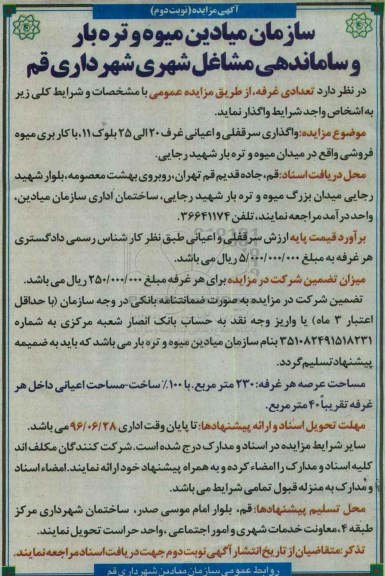 آگهی مزایده (نوبت دوم)
سازمان میادین میوه و تره بار
و ساماندهی مشاغل شهری شهرداری قم
در نظر دارد تعدادی غرفه، از طریق مزایده عمومی با مشخصات و شرایط کلی زیر
به اشخاص واجد شرایط واگذار نماید.
موضوع مزایده: واگذاری سرقفلی و اعیانی غرف ۲۰ الی ۲۵ بلوک ۱۱، با کاربری میوه
فروشی واقع در میدان میوه و تره بار شهید رجایی.
محل دریافت اسناد: قم، جاده قدیم قم تهران، روبروی بهشت معصومه، بلوار شهید
رجایی میدان بزرگ میوه و تره بار شهید رجایی، ساختمان اداری سازمان میادین،
واحد درآمد مراجعه نمایند، تلفن ۳۶۶۴۱۱۷۴.
برآورد قیمت پایه ارزش سرقفلی و اعیانی طبق نظر کارشناس رسمی دادگستری
هر غرفه به مبلغ ۵/۰۰۰/۰۰۰/۰۰۰ ریال می باشد.
میزان تضمین شرکت در مزایده برای هر غرفه مبلغ ۲۵۰/۰۰۰/۰۰۰ ریال می باشد.
تضمین شرکت در مزایده به صورت ضمانتنامه بانکی در وجه سازمان (با حداقل
اعتبار ۳ ماه) یا واریز وجه نقد به حساب بانک انصار شعبه مرکزی به شماره
۳۵۱۰۸۲۴۹۱۵۱۸۲۳۱ بنام سازمان میادین میوه و تره بار می باشد که باید به ضمیمه
پیشنهاد تسلیم گردد.
مساحت عرصه هر غرفه: ۲۳۰ متر مربع. با ۱۰۰٪ ساخت-مساحت اعیانی داخل هر
غرفه تقریباً ۴۰ متر مربع.
مهلت تحویل اسناد و ارائه پیشنهادها: تا پایان وقت اداری ۹۶/۰۶/۲۸ می باشد.
سایر شرایط مزایده در اسناد و مدارک درج شده است. شرکت کنندگان مکلف اند
کلیه اسناد و مدارک را امضاء کرده و به همراه پیشنهاد خود ارائه نمایند. امضاء اسناد
و مدارک به منزله قبول تمامی شرایط می باشد.
محل تسلیم پیشنهادها: قم، بلوار امام موسی صدر، ساختمان شهرداری مرکز
طبقه ۴، معاونت خدمات شهری و امور اجتماعی، واحد حراست تحویل نمایند.
تذکر: متقاضیان از تاریخ انتشار آگهی نوبت دوم جهت دریافت اسناد مراجعه نمایند.
روابط عمومی سازمان میادین شهرداری قم